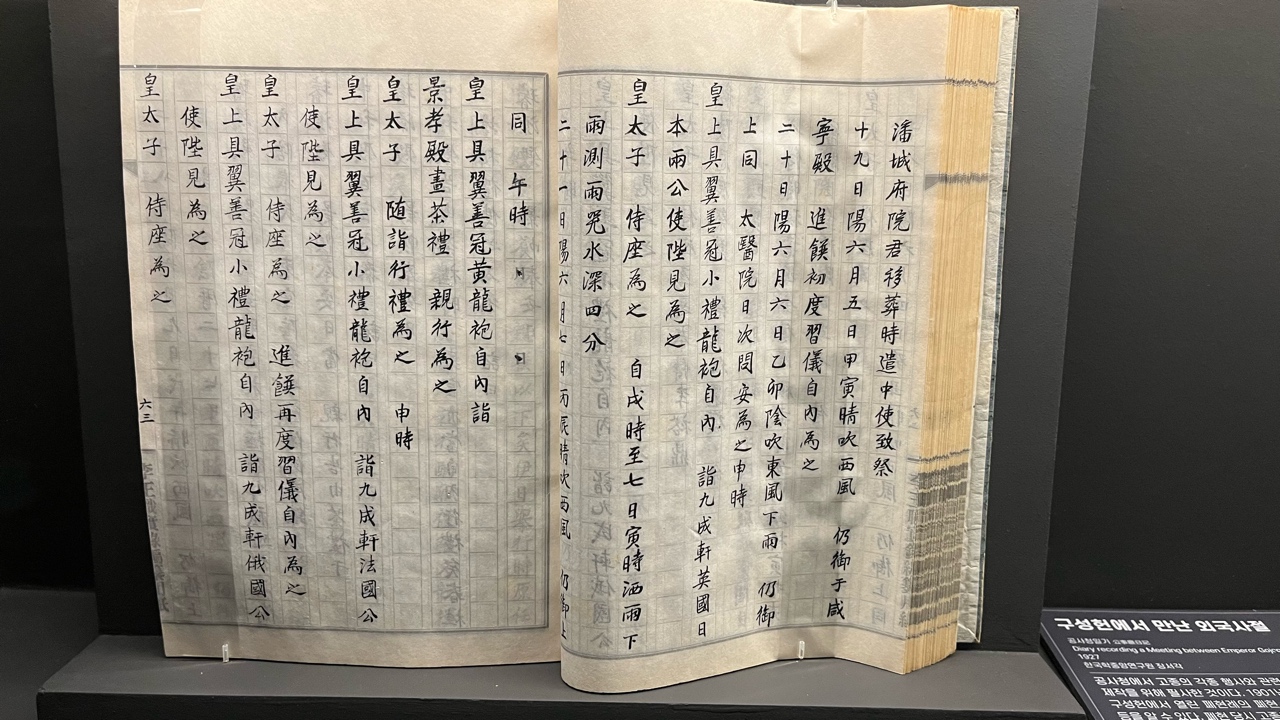 潘城府院君移葬時遣中使致祭
十九日陽六月五日甲寅晴吹西風 仍御于咸
寧殿 進饌初度習儀自內為之
二十日陽六月六日乙卯陰吹東風下雨 仍御
上同 太醫院日次問安為之申時
皇上具翼善冠小禮龍袍自內 詣九成軒英國日
本兩公使陛見為之
皇太子 侍座為之 自戌時至七日寅時洒雨下
雨測雨器水深四分
二十一日陽六月七日丙辰晴吹西風 仍御上
同 午時
皇上具翼善冠黃龍袍自內詣
景孝殿晝茶禮 親行為之
皇太子 随詣行禮為之 申時
皇上具翼善冠小禮龍袍自內 詣九成軒法國公
使陛見為之
皇太子 侍座為之 進饌再度習儀自內為之
皇上具翼善冠小禮龍袍自內 詣九成軒俄國公
使陛見為之
皇太子 侍座為之
六三
구성헌에서 만난 외국사절
공사청일기
Diary recording a Meeting between Emperor Gojo
1927
한국학중앙연구원 장서각
공사청에서 고종의 각종 행사와 관련
제작을 위해 필사한 것이다. 1901
구성헌에서 열린 폐현례의 폐현